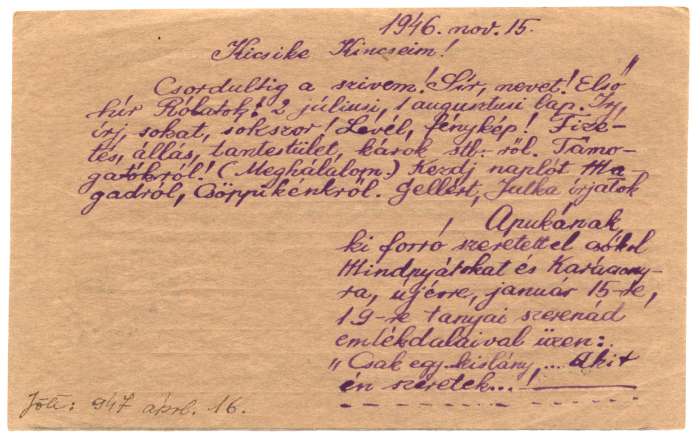 1946. nov. 15.
Kicsike Kincseim!
Csordultig a szivem! Sír, nevet! Első
hír Rólatok! 2 júliusi, 1 augusztusi lap. Írj,
írj, sokat, sokszor! Levél, fénykép! Fize-
tés, állás, tantestület, károk stb.-ről. Támo-
gatókról! (Meghálálom.) Kezdj naplót Ma-
gadról, Csöppikénkről. Gellért, Julka írjatok
Apukának
ki forró szeretettel csókol
Mindnyátokat és Karácsony-
ra, újévre, január 15-re,
19-re tanyai szerenád
emlékdalaival üzen:
"Csak egy kislány,... Akit
én szeretek...!
Jött: 947 ápr. 16.